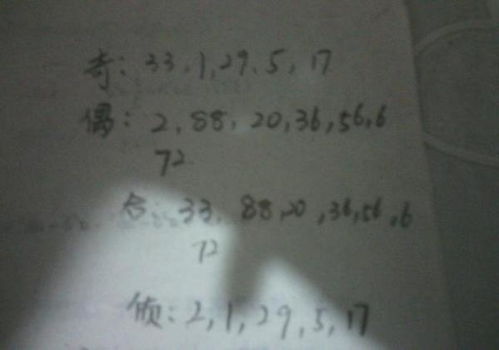 奇：33、1、29、5、17
偶：2，88，20，36，56，6
72
合：33，88，20，36，56，6
72
侦：2，1，29，5，17